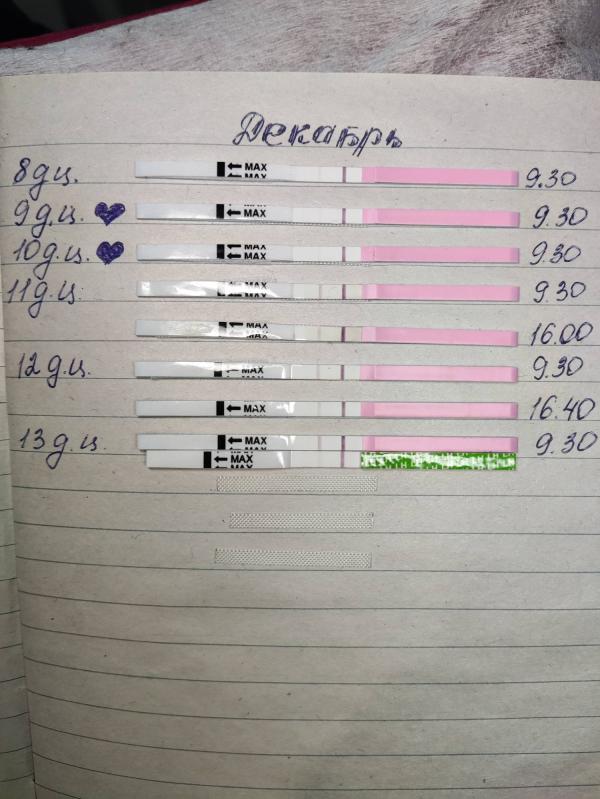 Декабрь
8 д.ц. ← MAX MAX 9.30
9 д.ц. MAX ← MAX 9.30
10 д.ц. MAX ← MAX 9.30
11 д.ц. ← MAX MAX 9.30
← MAX 16.00
12 д.ц. ← MAX 9.30
← MAX 16.40
13 д.ц. ← MAX 9.30
← MAX MAX